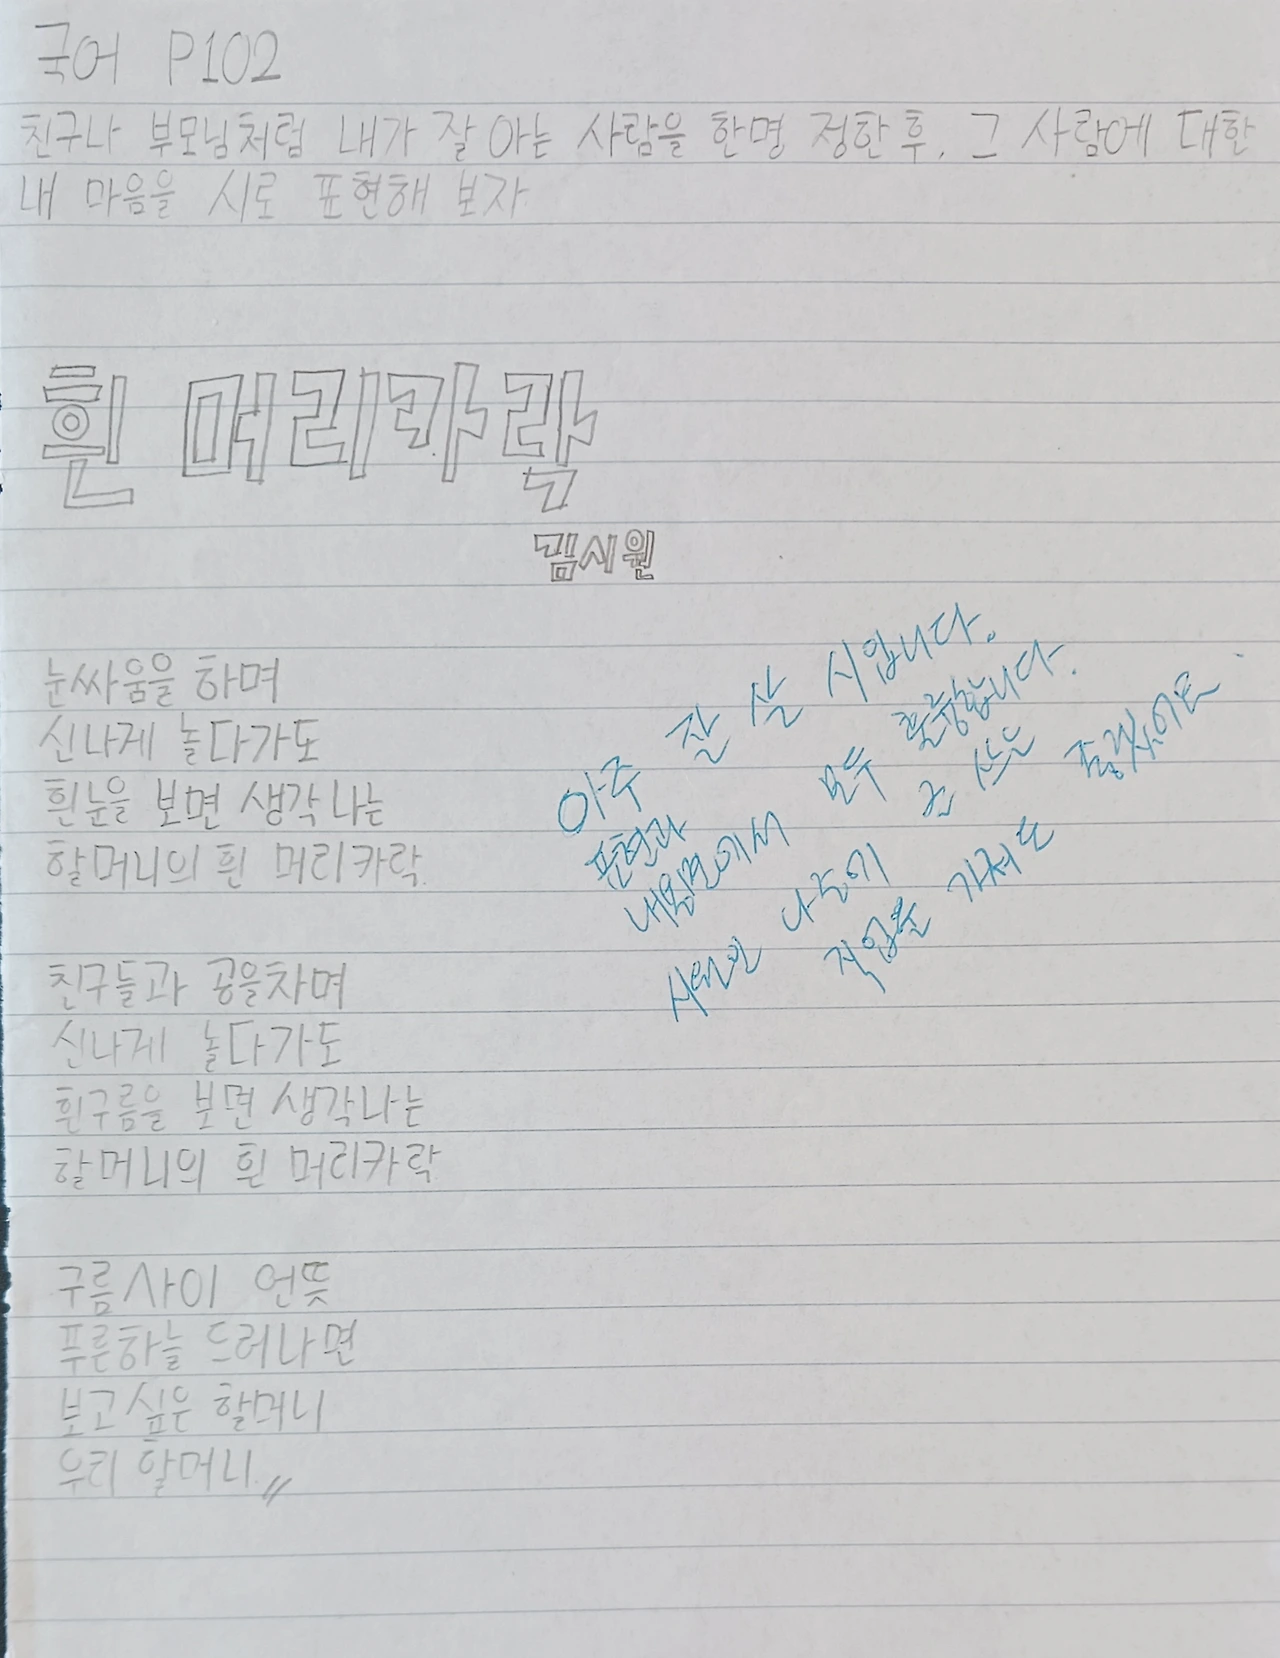 국어 P102
친구나 부모님처럼 내가 잘 아는 사람을 한명 정한 후, 그 사람에 대한
내 마음을 시로 표현해 보자
흰 머리카락
김시원
눈싸움을 하며
신나게 놀다가도
흰눈을 보면 생각 나는
할머니의 흰 머리카락
친구들과 공을차며
신나게 놀다가도
흰구름을 보면 생각나는
할머니의 흰 머리카락
구름사이 언뜻
푸른하늘 드러나면
보고싶은 할머니
우리 할머니
아주 잘 쓴 시입니다.
표현과
내용면에서 모두 훌륭합니다.
시원인 나중에 글 쓰는
직업을 가져도 좋겠어요